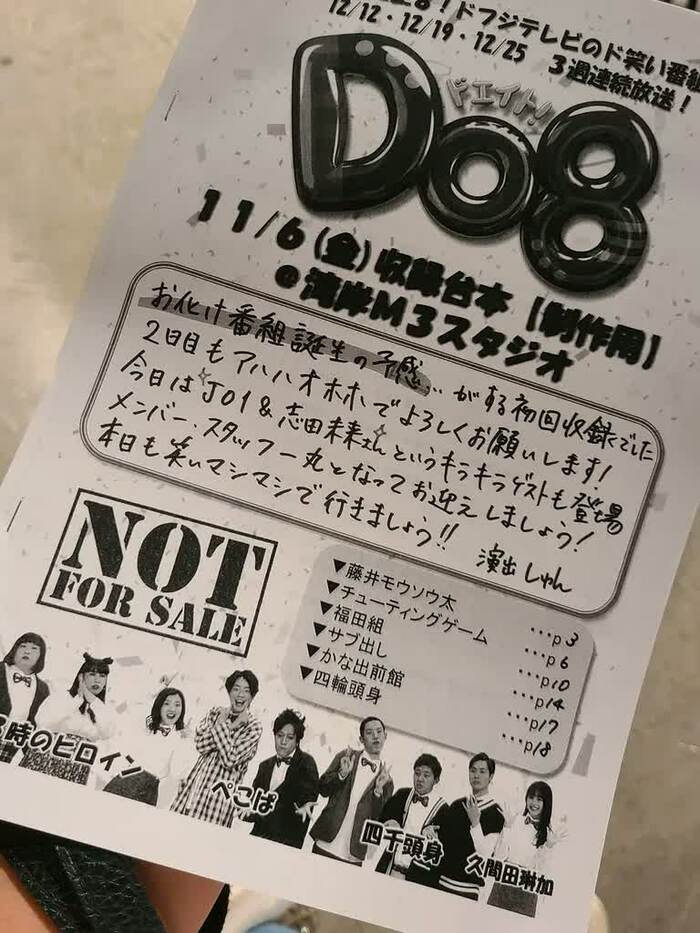 ！ドフジテレビのド笑い番組
12/12・12/19・12/25 3週連続放送！
ドエイト！
Do8
11/6(金)収録台本【制作周】
@湾岸M3スタジオ
お化け番組誕生の予感…がする初回収録でした
2日目もアハハオホホでよろしくお願いします！
今日はJO1&志田未来さんというキラキラゲストも登場。
メンバー、スタッフ一丸となってお迎えしましょう！
本日も笑いマシマシで行きましょう!!
演出しゅん
NOT
FOR SALE
▼藤井モウソウ太 …p3
▼チューティングゲーム …p6
▼福田組 …p10
▼サブ出し …p14
▼かな出前館 …p17
▼四輪頭身 …p18
時のヒロイン
ぺこぱ
四千頭身
久間田琳加